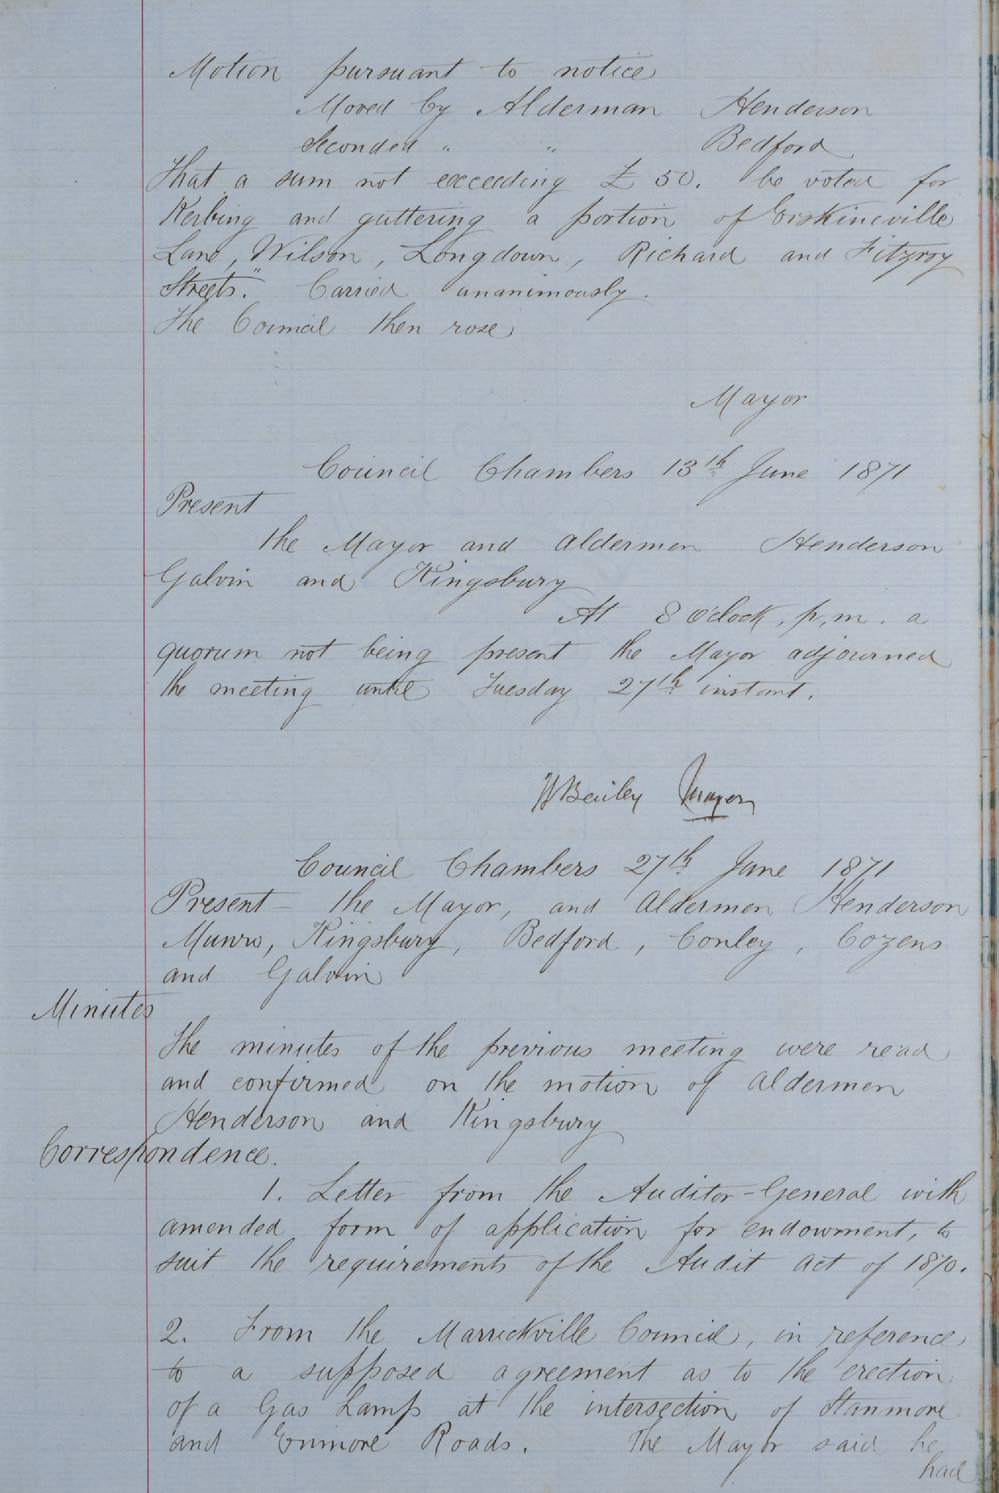 Motion pursuant to notice
Moved by Alderman Henderson
Seconded " " Bedford
That a sum not exceeding £50. be voted for
Kerbing and guttering a portion of Erskineville
Lane, Wilson, Longdown, Richard and Fitzroy
Streets." Carried unanimously.
The Council then rose
Mayor
Council Chambers 13th June 1871
Present
the Mayor and Aldermen Henderson
Galvin and Kingsbury
At 8 o'clock, p.m. a
quorum not being present the Mayor adjourned
the meeting until Tuesday 27th instant.
Bailey Mayor
Council Chambers 27th June 1871
Present - the Mayor, and Aldermen Henderson
Munro, Kingsbury, Bedford, Conley, Cozens
and Galvin
Minutes
The minutes of the previous meeting were read
and confirmed on the motion of Aldermen
Henderson and Kingsbury
Correspondence.
1. Letter from the Auditor-General with
amended form of application for endowment, to
suit the requirements of the Audit Act of 1870.
2. From the Marrickville Council, in reference
to a supposed agreement as to the erection
of a Gas Lamp at the intersection of Stanmore
and Enmore Roads. The Mayor said he
had